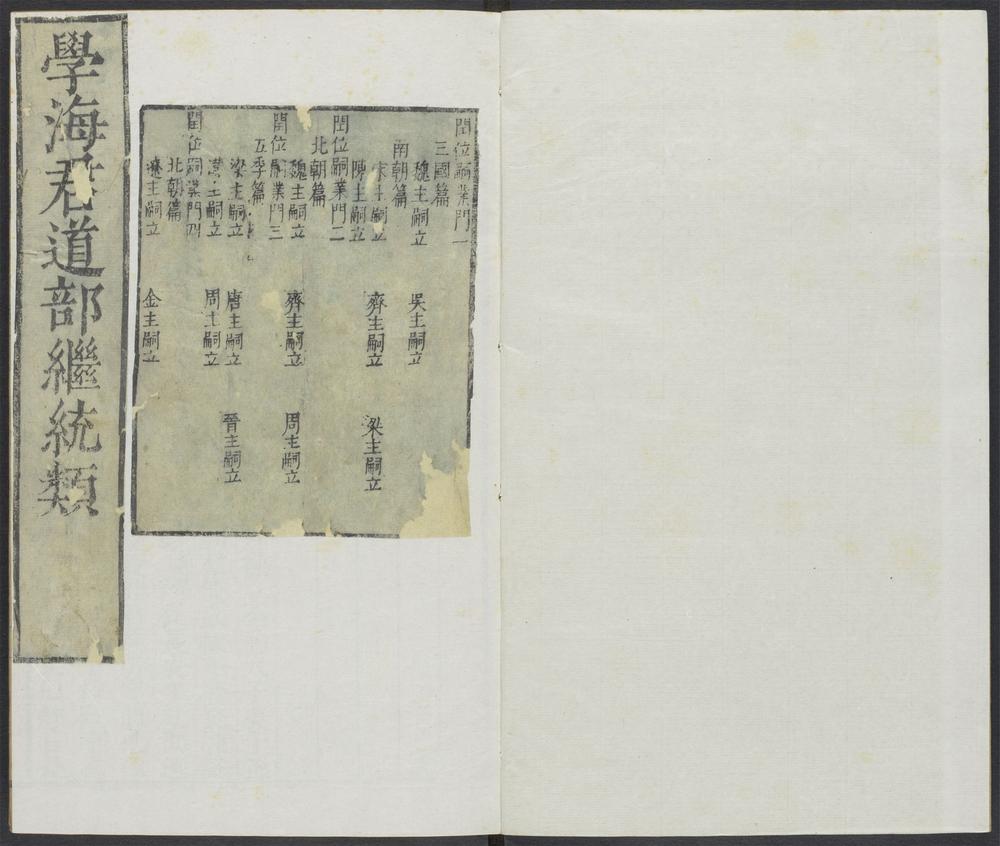 閏位嗣業門一
三國篇
魏主嗣立 吳主嗣立
南朝篇
宋主嗣立 齊主嗣立 梁主嗣立
陳主嗣立
閏位嗣業門二
北朝篇
魏主嗣立 齊主嗣立 周主嗣立
閏位嗣業門三
五季篇
梁主嗣立 唐主嗣立 晉主嗣立
漢主嗣立 周主嗣立
閏位嗣業門四
北朝篇
遼主嗣立 金主嗣立
學海君道部繼統類